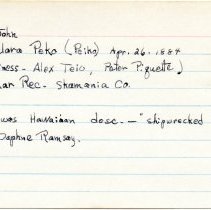 John
lara Peko (Peiko) Apr. 26. 1884
ness - Alex Teio, Peter Piquette)
ar Rec. Skamania Co.
was Hawaiian desc. - "shipwrecked
Daphne Ramsay.